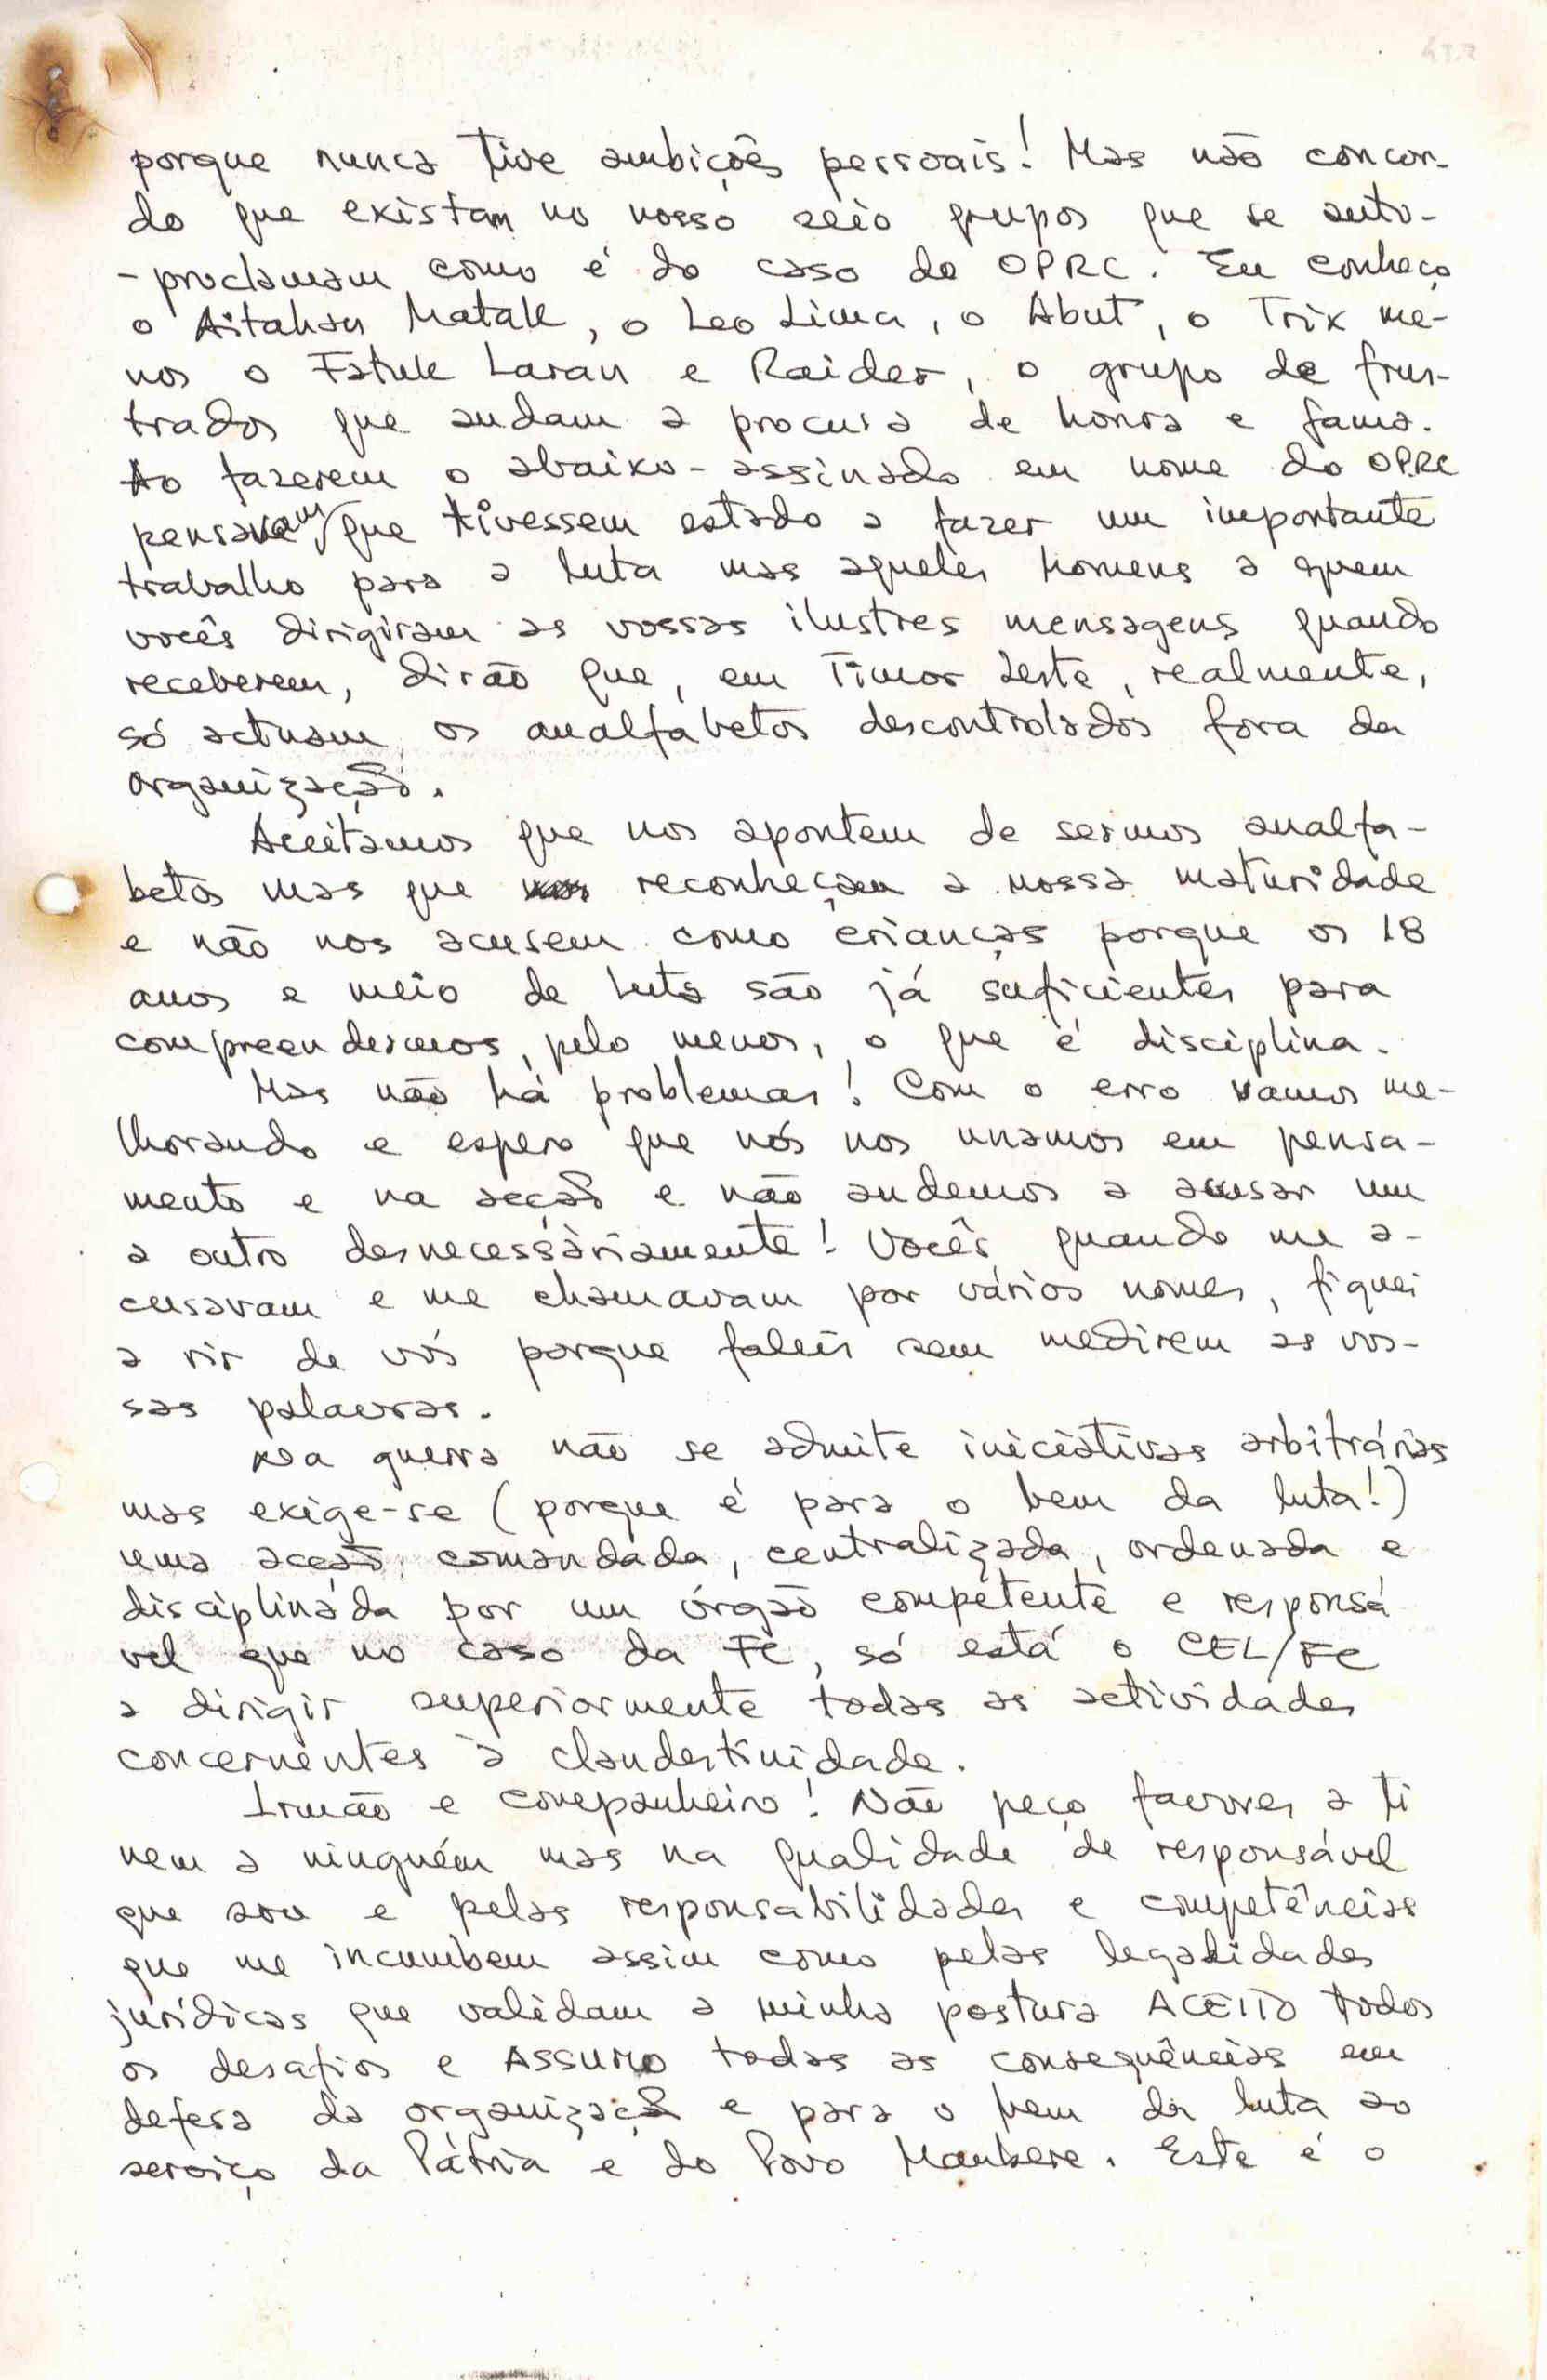 porque nunca tive ambições pessoais! Mas não concor-
do que existam no nosso seio grupos que se auto-
-proclamam como é do caso do OPRC. Eu conheço
o Aitahan Matak, o Leo Lima, o Abut, o Trix me-
nos o Fatuk Laran e Raider, o grupo de frus-
trados que andam a procura de honra e fama.
Ao fazerem o abaixo-assinado em nome do OPRC
pensavam que tivessem estado a fazer um importante
trabalho para a luta mas aqueles homens a quem
vocês dirigiram as vossas ilustres mensagens quando
receberem, dirão que, em Timor Leste, realmente,
só actuam os analfabetos descontrolados fora da
organização.
Aceitamos que nos apontem de sermos analfa-
betos mas que reconheçam a nossa maturidade
e não nos acusem como crianças porque os 18
anos e meio de luta são já suficientes para
compreendermos, pelo menos, o que é disciplina.
Mas não há problemas! Com o erro vamos me-
lhorando e espero que nós nos unamos em pensa-
mento e na acção e não andemos a acusar um
a outro desnecessàriamente! Vocês quando me a-
cusavam e me chamavam por vários nomes, fiquei
a rir de vós porque faleis sem medirem as vos-
sas palavras.
Na guerra não se admite iniciativas arbitrárias
mas exige-se (porque é para o bem da luta!)
uma acção comandada, centralizada, ordenada e
disciplinada por um órgão competente e responsá
vel que no caso da FC, só está o CEL/FC
a dirigir superiormente todas as actividades
concernentes à clandestinidade.
Irmão e companheiro! Não peço favores a ti
nem a ninguém mas na qualidade de responsável
que sou e pelas responsabilidades e competências
que me incumbem assim como pelas legalidades
jurídicas que validam a minha postura ACEITO todos
os desafios e ASSUMO todas as consequências em
defesa da organização e para o bem da luta ao
serviço da Pátria e do Povo Maubere. Este é o